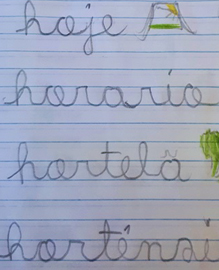 hoje A
horario
hortelã
hortênsi